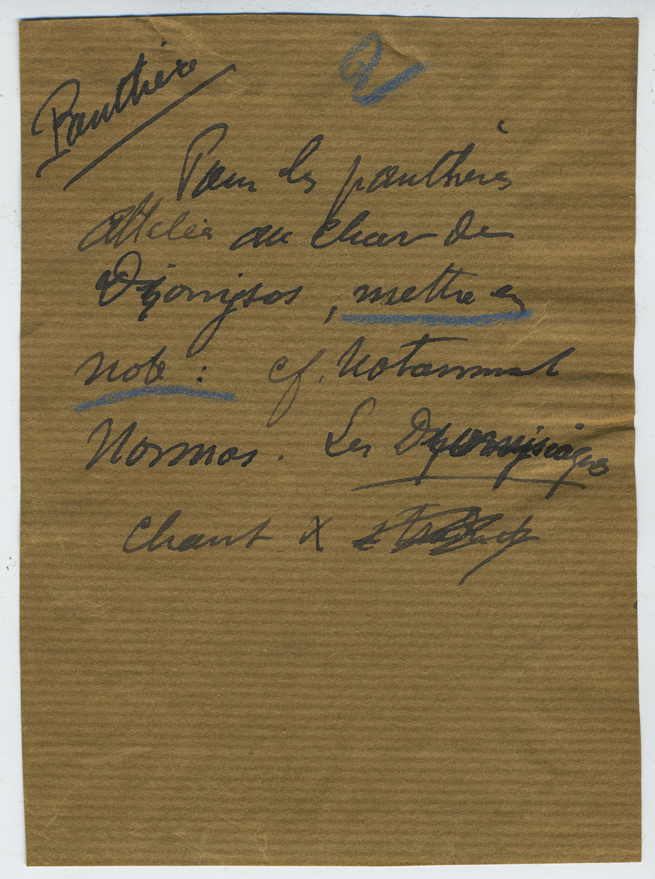 Panthère
Pour les panthères
attelées au char de
Dionysos, mettre en
note : cf. Notamment
Nonnos. Les Dionysiaques
Chant X